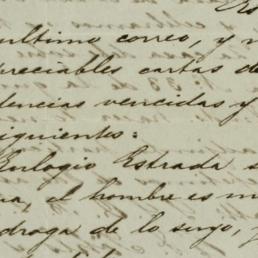 Es
ultimo correo, y
preciables cartas de
dencias vencidas y
siguientes:
Eulogio Estrada s
na, el hombre es m
droga de lo suyo,